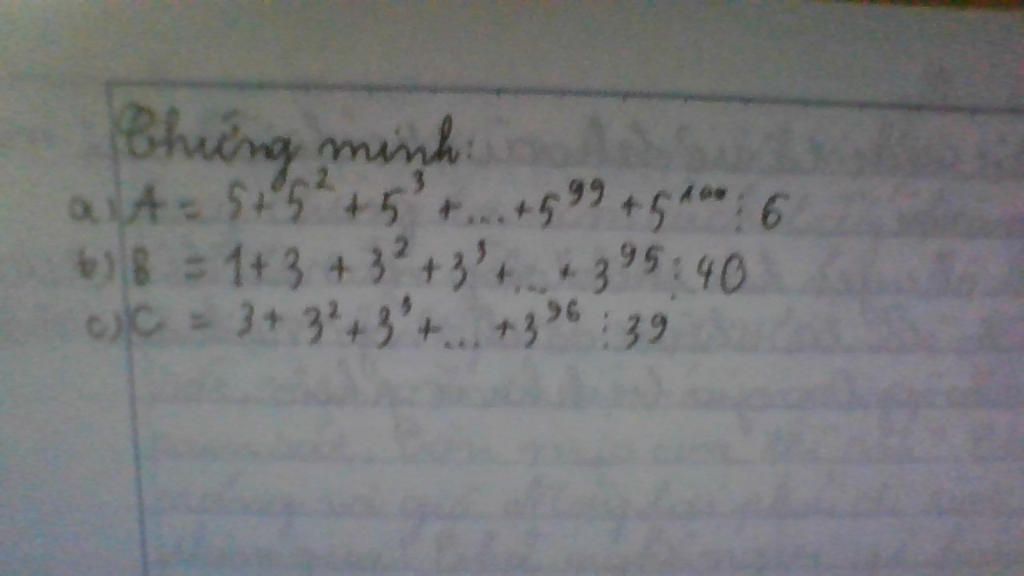 Chứng minh:
a) A = 5 + 5² + 5³ + ... + 5⁹⁹ + 5¹⁰⁰ ⋮ 6
b) B = 1 + 3 + 3² + 3³ + ... + 3⁹⁵ ⋮ 40
c) C = 3 + 3² + 3³ + ... + 3⁹⁶ ⋮ 39